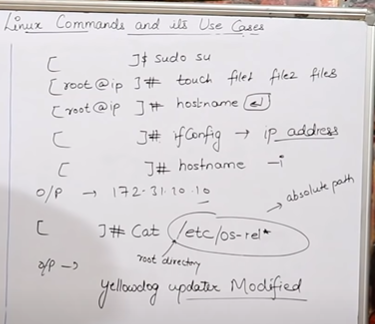 Linux Commands and its Use Cases
[ ]$ sudo su
[root@ip ]# touch file1 file2 file3
[root@ip ]# hostname
[ ]# ifconfig → ip address
[ ]# hostname -i
O/P → 172.31.10.10
absolute path
[ ]# Cat /etc/os-rel*
root directory
O/P →
Yellowdog updater Modified